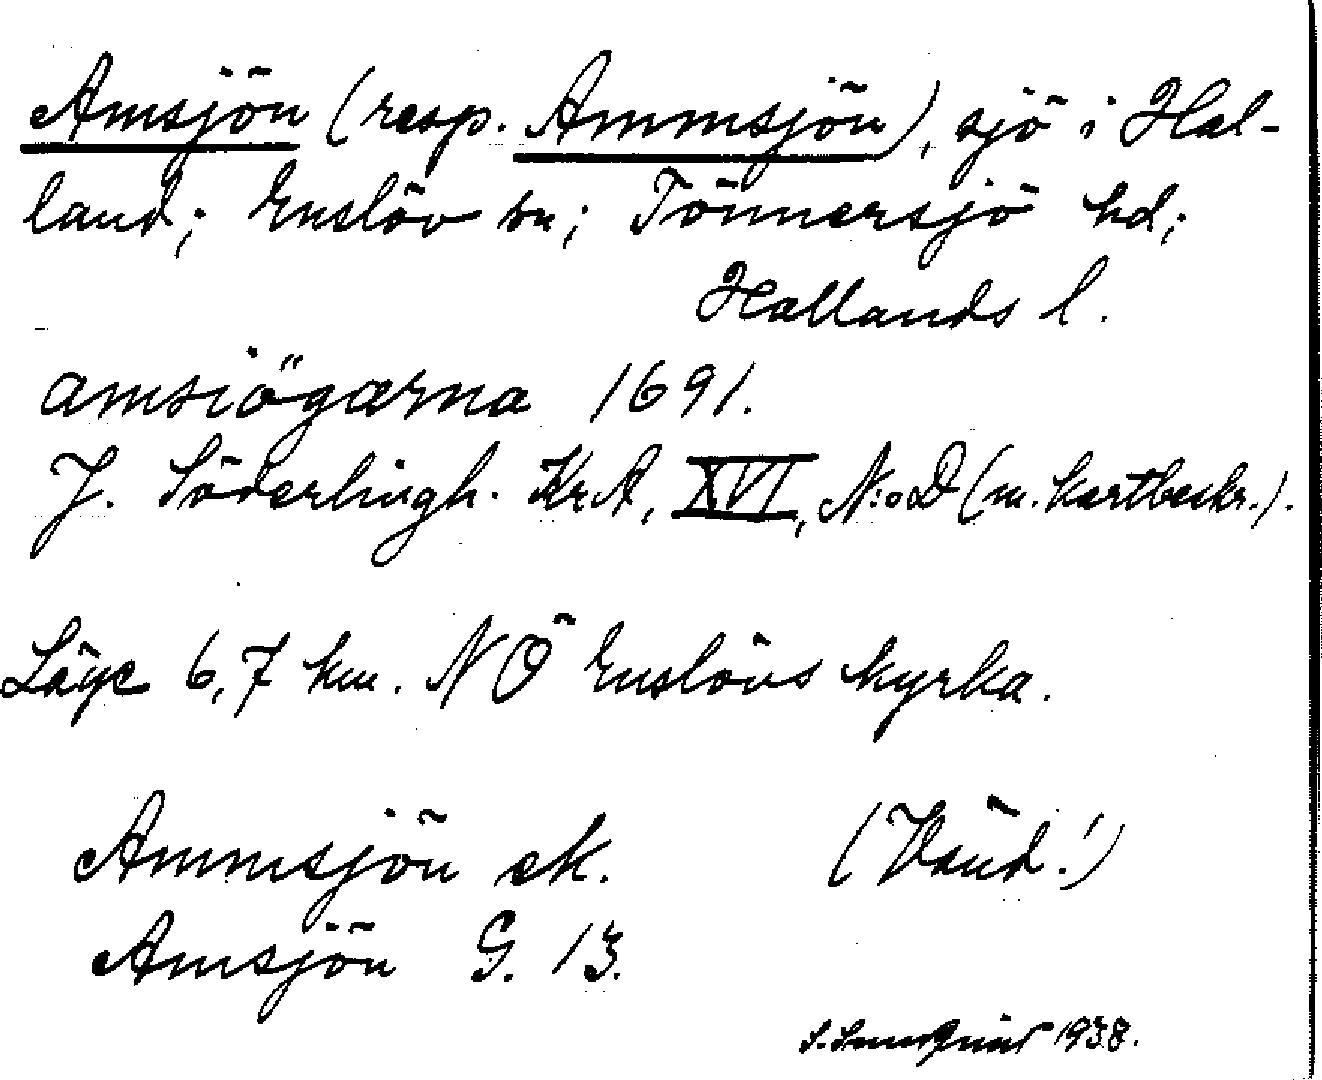 Amsjön (resp. Ammsjön), sjö i Hal-
land; Enslöv sn; Tönnersjö hd;
Hallands l.
amsiögærna 1691.
J. Söderlingh. Kr.A, XVI, N:o D (m. kartbeskr.).
Läge 6,7 km. NÖ Enslövs kyrka.
Ammsjön ek. (Vänd!)
Amsjön G. 13.
1938.